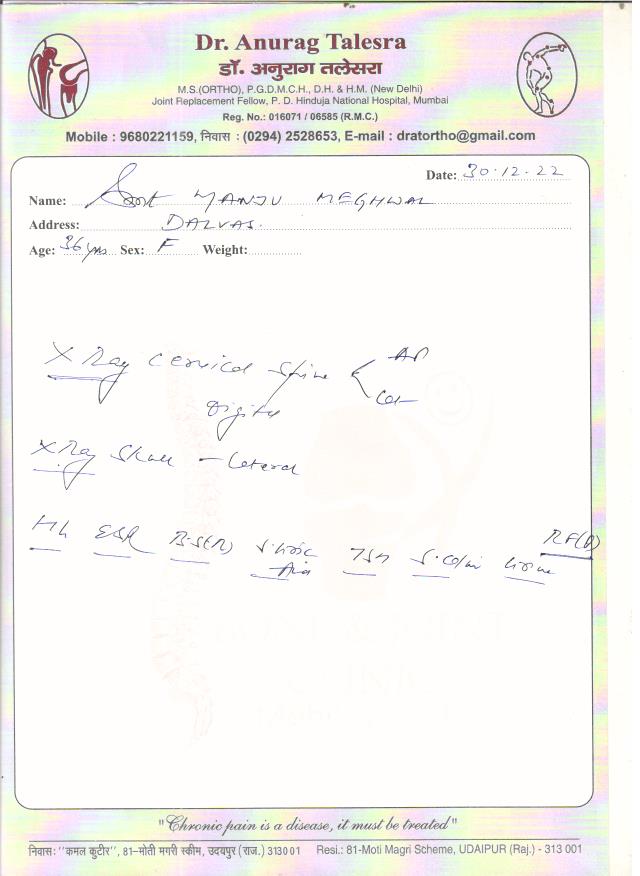 Dr. Anurag Talesra
डॉ. अनुराग तलेसरा
M.S.(ORTHO), P.G.D.M.C.H., D.H. & H.M. (New Delhi)
Joint Replacement Fellow, P. D. Hinduja National Hospital, Mumbai
Reg. No.: 016071 / 06585 (R.M.C.)
Mobile : 9680221159, निवास : (0294) 2528653, E-mail : dratortho@gmail.com
Date: 30.12.22
Name: Smt MANJU MEGHWAL
Address: DALVAS.
Age: 36 yrs Sex: F Weight:
X Ray cervical spine AP
Lat
X Ray Skull - lateral
Hb ESR B.S(R) S. Uric TSH RF(Q)
Acid
BONE & JOINT
CLINIC
"Chronic pain is a disease, it must be treated"
निवास: "कमल कुटीर", 81-मोती मगरी स्कीम, उदयपुर (राज.) 313001 Resi.: 81-Moti Magri Scheme, UDAIPUR (Raj.) - 313 001